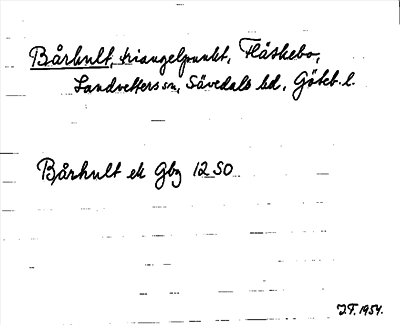 Bårhult, triangelpunkt, Håskebo,
Landvetters sn, Sävedals hd, Göteb. l.
Bårhult ek Gbg 12 SO
J.F. 1954.